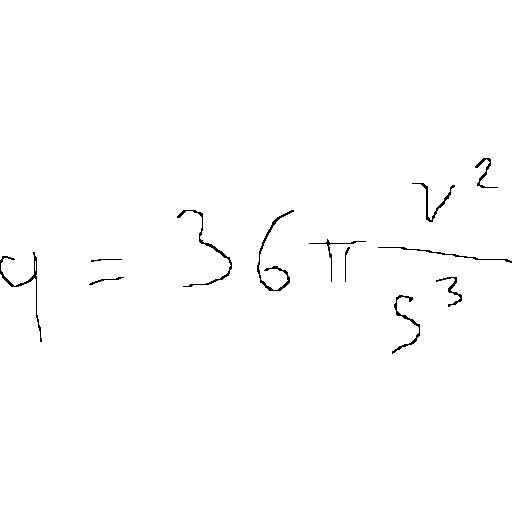 q = 36π \frac{v^2}{s^3}